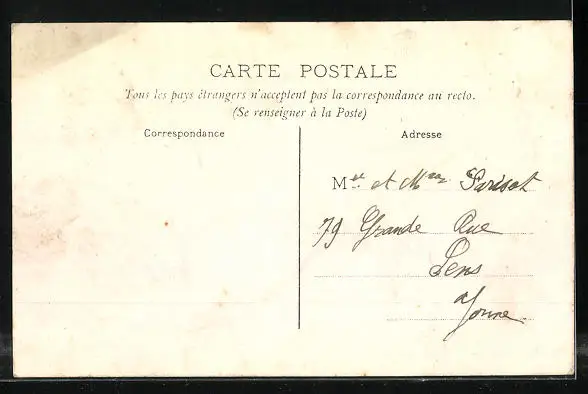 CARTE POSTALE
Tous les pays étrangers n'acceptent pas la correspondance au recto.
(Se renseigner à la Poste)
Correspondance
Adresse
M et Mme Parisot
79 Grande Rue
Sens
Yonne